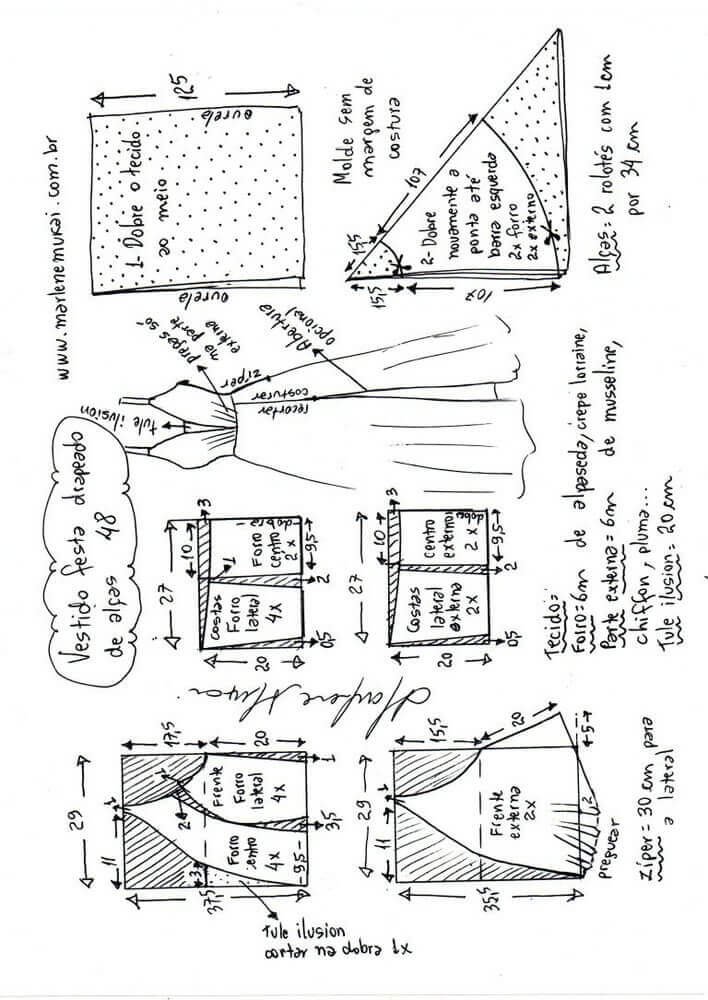 www.marlenemukai.com.br
Vestido festa drapeado
de alças 48
125
ourela
1- Dobre o tecido
ao meio
ourela
Molde sem
margem de
costura
107
15,5
15,5
107
2- Dobre
novamente a
ponta até
barra esquerda
2x forro
2x externo
Alças: 2 rolotês com 1cm
por 34 cm
tule ilusion
pregas so-
na parte
externa
ziper
Abertura
opcional
costurar
recortar
27
10
3
1
Costas
Forro
lateral
4x
Forro
centro
2x
dobra
20
0,5
2
9,5
27
10
3
Costas
lateral
externa
2x
centro
externo
2x
dobra
20
0,5
2
9,5
Tecido=
Forro=6m de alpaseda, crepe lorraine,
Parte externa=6m de musseline,
chiffon, pluma...
Tule ilusion=20 cm
Marlene Mukai
29
11
1
17,5
20
2
1
Frente
Forro
lateral
4x
Forro
centro
4x
3
37,5
9,5
3,5
1
Tule ilusion
cortar na dobra 1x
29
11
1
15,5
20
Frente
externa
2x
35,5
5
2
preguear
Ziper=30 cm para
a lateral